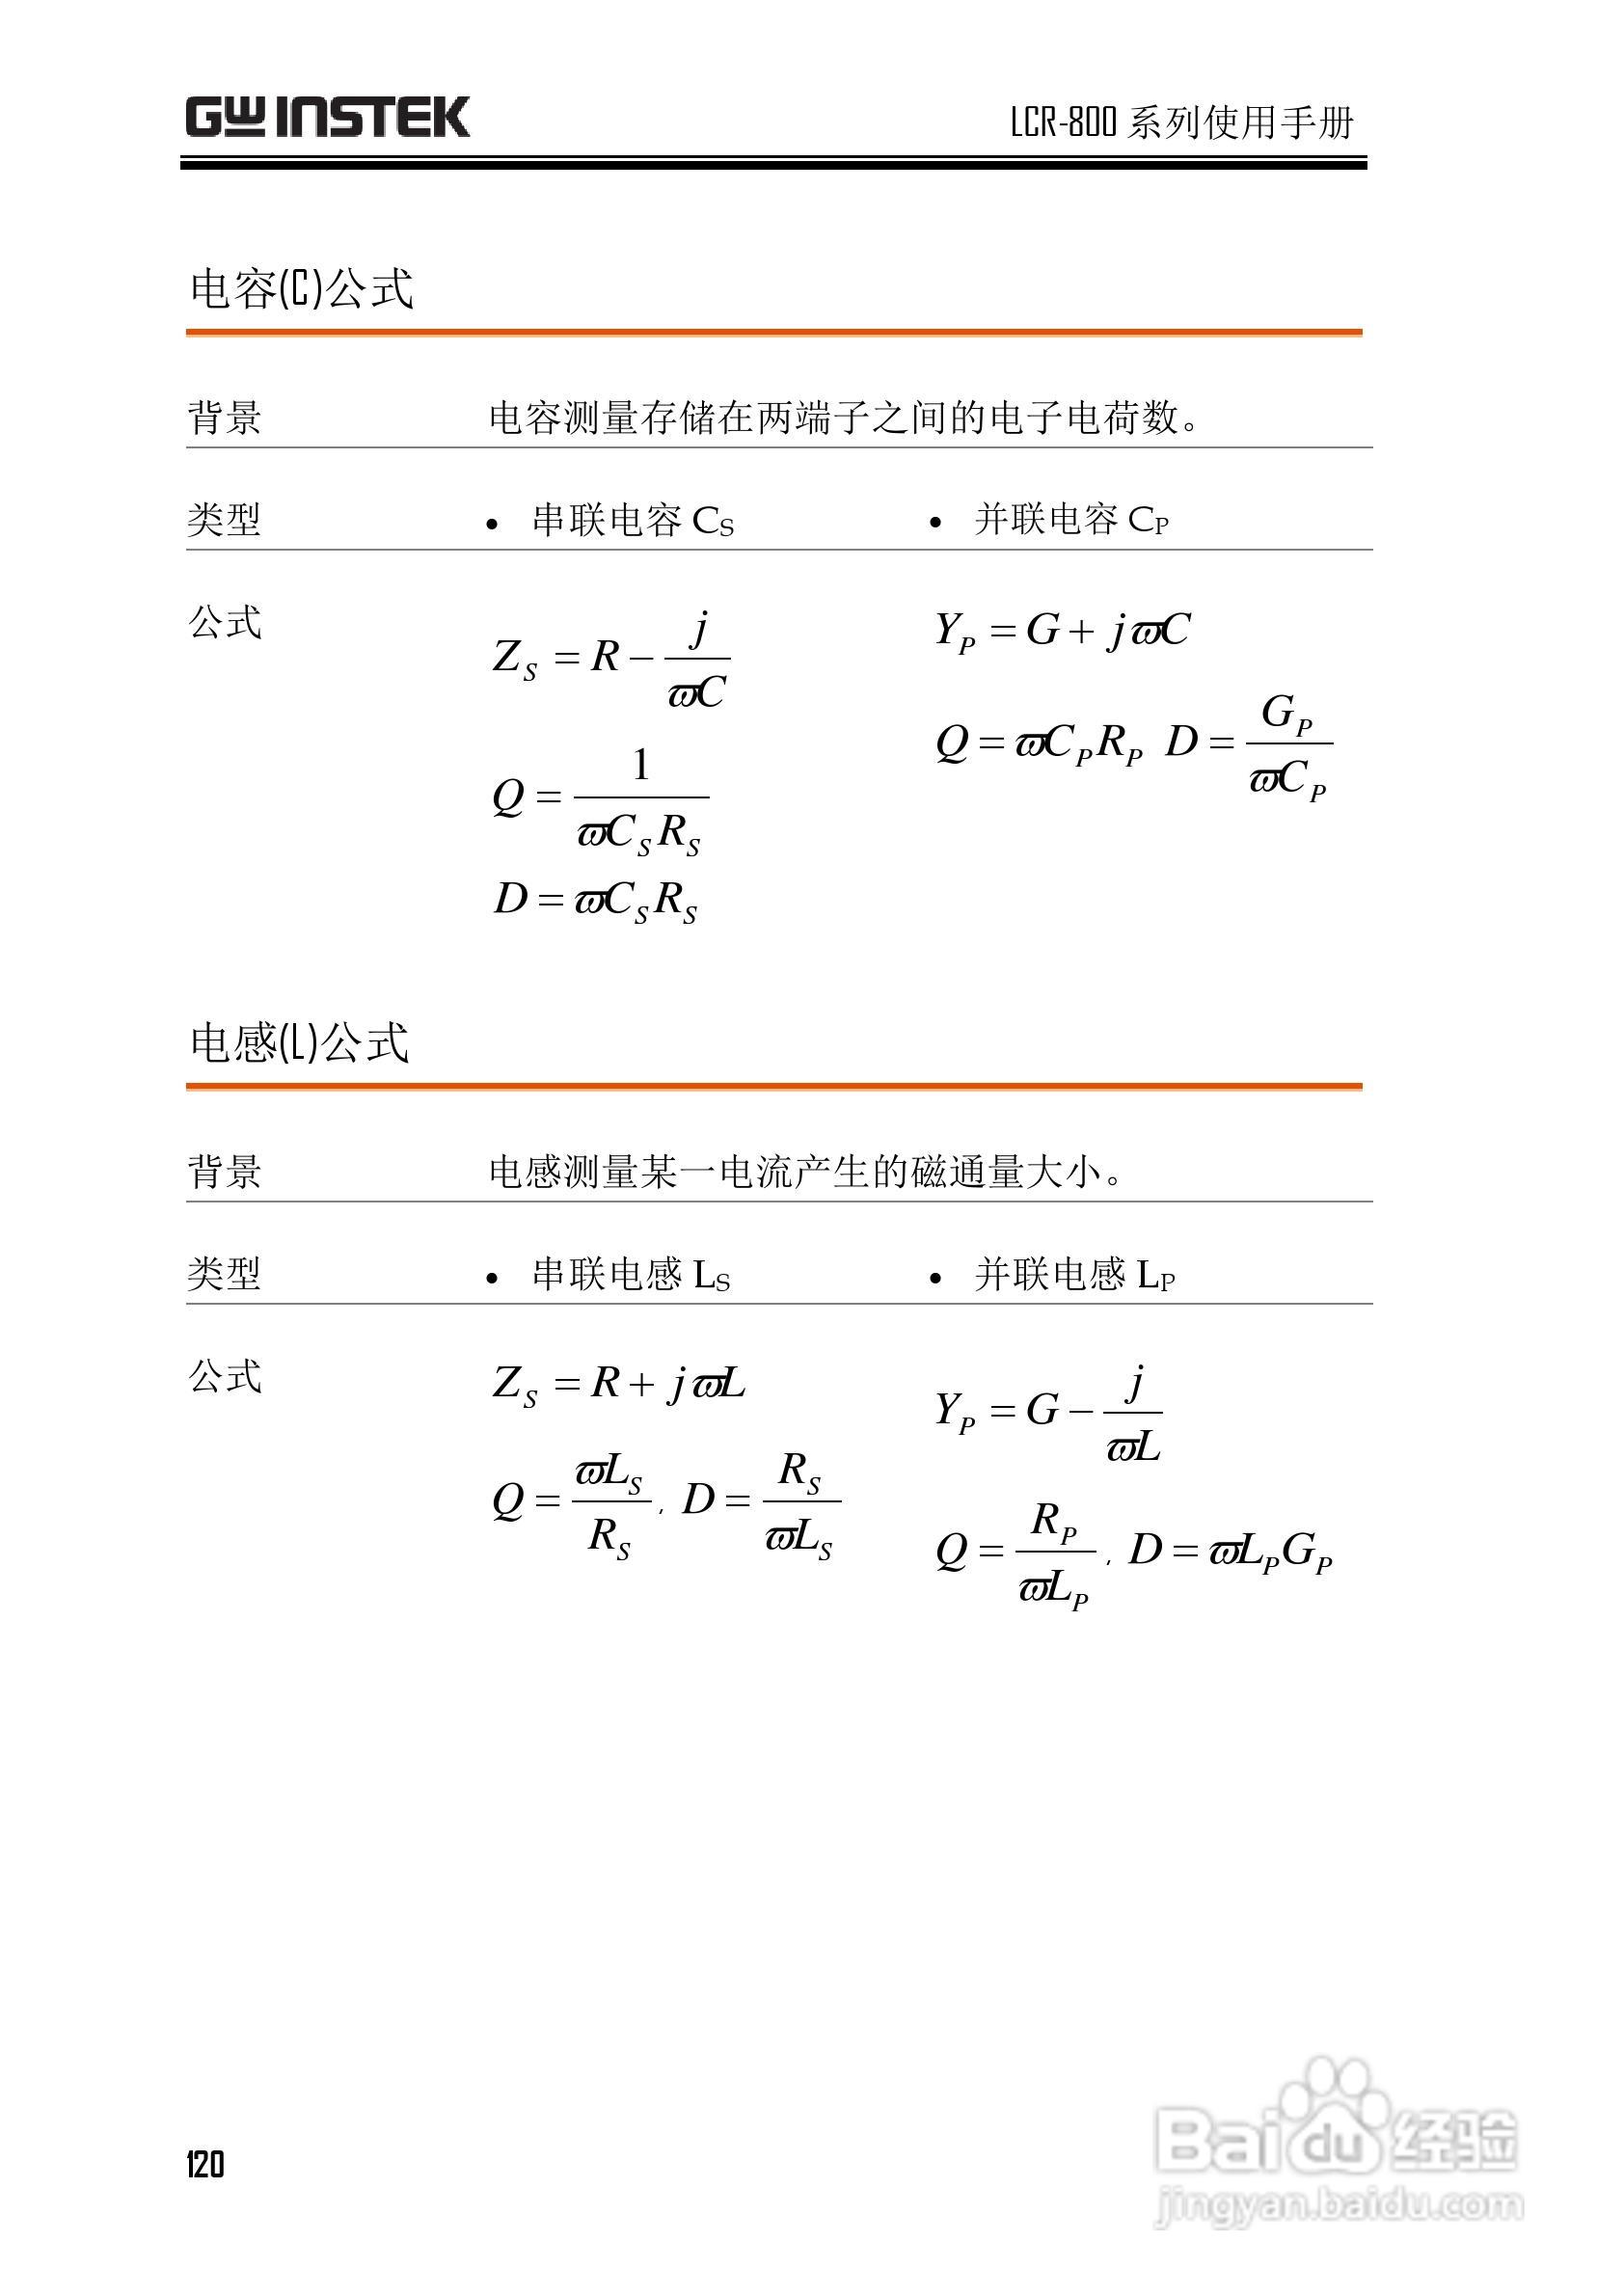 GW INSTEK LCR-800 系列使用手册
电容(C)公式
背景 电容测量存储在两端子之间的电子电荷数。
类型 • 串联电容 C_S • 并联电容 C_P
公式 Z_S = R − j/ϖC Y_P = G + jϖC
Q = 1/ϖC_S R_S Q = ϖC_P R_P D = G_P/ϖC_P
D = ϖC_S R_S
电感(L)公式
背景 电感测量某一电流产生的磁通量大小。
类型 • 串联电感 L_S • 并联电感 L_P
公式 Z_S = R + jϖL Y_P = G − j/ϖL
Q = ϖL_S/R_S, D = R_S/ϖL_S Q = R_P/ϖL_P, D = ϖL_P G_P
120
Baidu 经验
jingyan.baidu.com